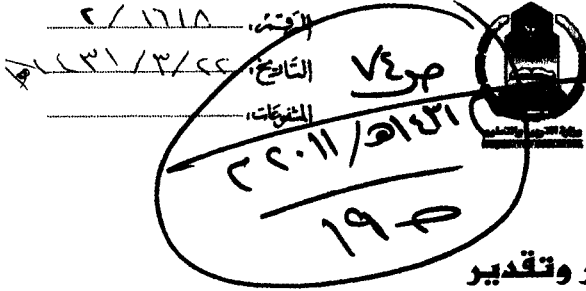 الرقم: ١٦١٨ / ٢
التاريخ: ٢٢ / ٣ / ١٤٣١هـ
المشفوعات:
ص٧٤
١٤٣١هـ/٢٠١١م
ص ١٩
وزارة التربية والتعليم
وتقدير